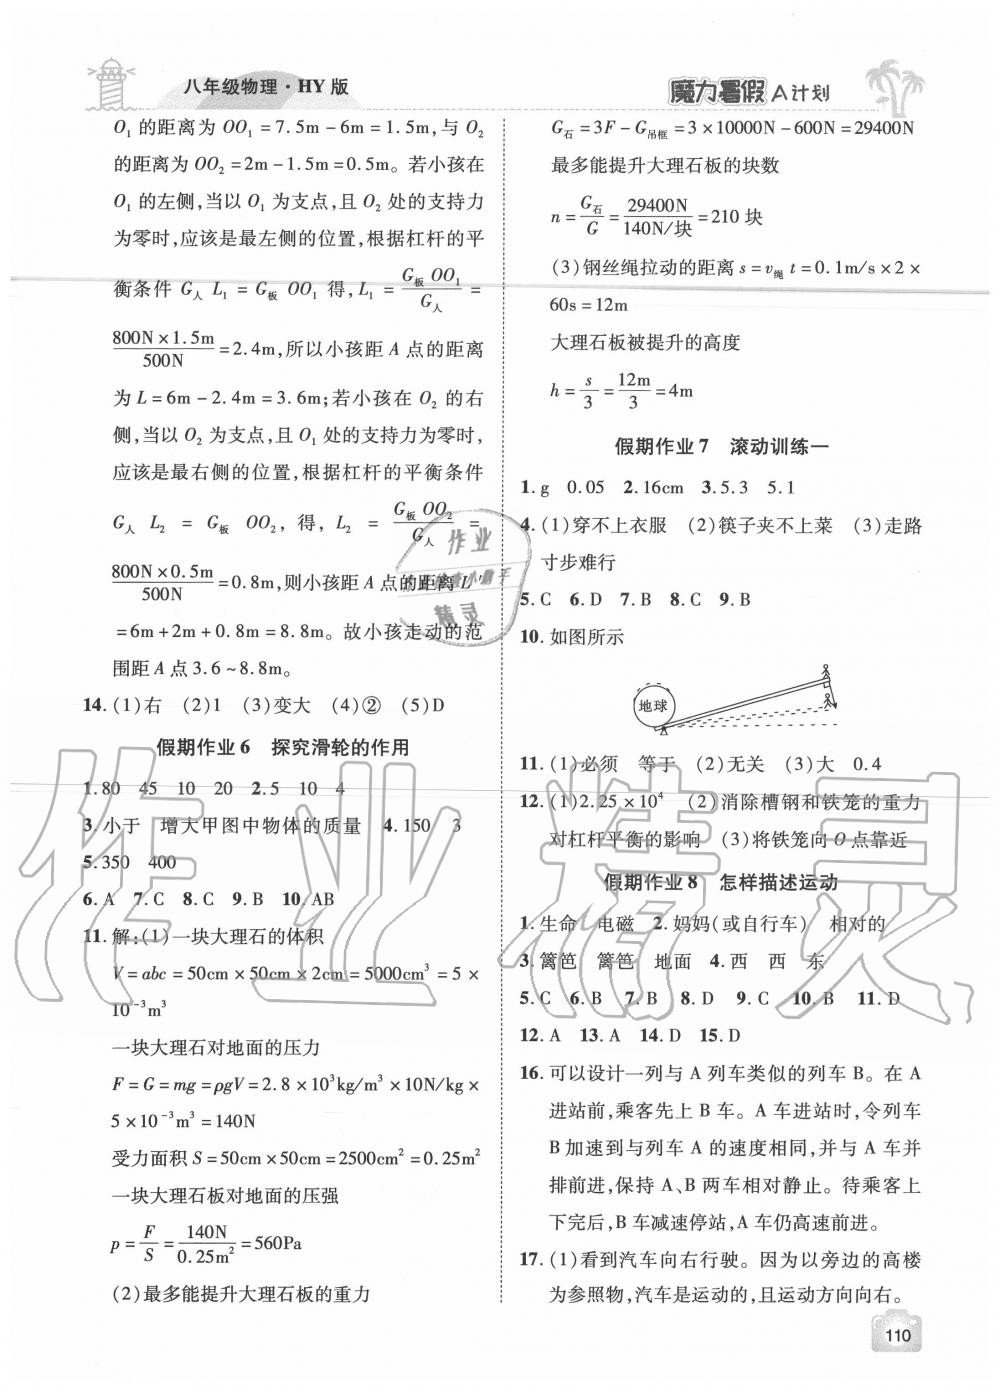 八年级物理·HY 版
魔力暑假 A计划
O₁ 的距离为 OO₁=7.5m-6m=1.5m,与 O₂
的距离为 OO₂=2m-1.5m=0.5m。若小孩在
O₁ 的左侧,当以 O₁ 为支点,且 O₂ 处的支持力
为零时,应该是最左侧的位置,根据杠杆的平
衡条件 G人 L₁=G板 OO₁ 得,L₁=G板 OO₁/G人=
800N×1.5m/500N=2.4m,所以小孩距 A 点的距离
为 L=6m-2.4m=3.6m;若小孩在 O₂ 的右
侧,当以 O₂ 为支点,且 O₁ 处的支持力为零时,
应该是最右侧的位置,根据杠杆的平衡条件
G人 L₂ = G板 OO₂, 得, L₂ = G板 OO₂/G人 =
800N×0.5m/500N=0.8m,则小孩距 A 点的距离 L'
=6m+2m+0.8m=8.8m。故小孩走动的范
围距 A 点 3.6~8.8m。
14.(1)右 (2)1 (3)变大 (4)② (5)D
假期作业 6 探究滑轮的作用
1.80 45 10 20 2.5 10 4
3.小于 增大甲图中物体的质量 4.150 3
5.350 400
6.A 7.C 8.C 9.B 10.AB
11.解:(1)一块大理石的体积
V=abc=50cm×50cm×2cm=5000cm³=5×
10⁻³m³
一块大理石对地面的压力
F=G=mg=ρgV=2.8×10³kg/m³×10N/kg×
5×10⁻³m³=140N
受力面积 S=50cm×50cm=2500cm²=0.25m²
一块大理石板对地面的压强
p=F/S=140N/0.25m²=560Pa
(2)最多能提升大理石板的重力
G石=3F-G吊框=3×10000N-600N=29400N
最多能提升大理石板的块数
n=G石/G=29400N/140N/块=210 块
(3)钢丝绳拉动的距离 s=v绳 t=0.1m/s×2×
60s=12m
大理石板被提升的高度
h=s/3=12m/3=4m
假期作业 7 滚动训练一
1.g 0.05 2.16cm 3.5.3 5.1
4.(1)穿不上衣服 (2)筷子夹不上菜 (3)走路
寸步难行
5.C 6.D 7.B 8.C 9.B
10.如图所示
地球
11.(1)必须 等于 (2)无关 (3)大 0.4
12.(1)2.25×10⁴ (2)消除槽钢和铁笼的重力
对杠杆平衡的影响 (3)将铁笼向 O 点靠近
假期作业 8 怎样描述运动
1.生命 电磁 2.妈妈(或自行车) 相对的
3.篱笆 篱笆 地面 4.西 西 东
5.C 6.B 7.B 8.D 9.C 10.B 11.D
12.A 13.A 14.D 15.D
16.可以设计一列与 A 列车类似的列车 B。在 A
进站前,乘客先上 B 车。A 车进站时,令列车
B 加速到与列车 A 的速度相同,并与 A 车并
排前进,保持 A、B 两车相对静止。待乘客上
下完后,B 车减速停站,A 车仍高速前进。
17.(1)看到汽车向右行驶。因为以旁边的高楼
为参照物,汽车是运动的,且运动方向向右。
110
作业精灵
作业
精灵